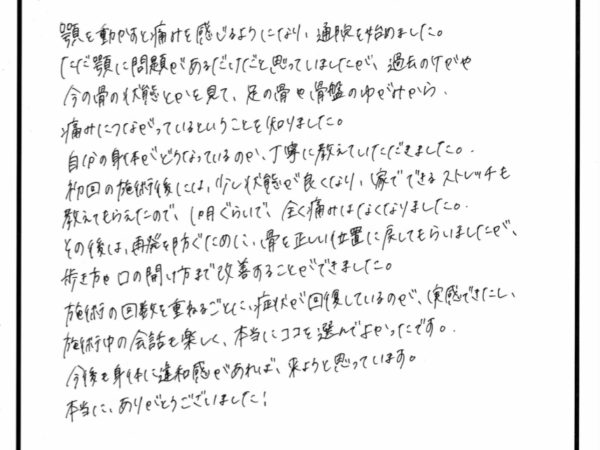 顎を動かすと痛みを感じるようになり、通院を始めました。
ただ顎に問題があるだけだと思っていましたが、過去のケガや
今の骨の状態とかを見て、足の骨や骨盤のゆがみから、
痛みにつながっているということを知りました。
自分の身体がどうなっているのか、丁寧に教えていただきました。
初回の施術後には、少し状態が良くなり、家でできるストレッチも
教えてもらえたので、1ヶ月ぐらいで、全く痛みはなくなりました。
その後は、再発を防ぐために、骨を正しい位置に戻してもらいましたが、
歩き方や口の開け方まで改善することができました。
施術の回数を重ねるごとに、症状が回復しているのが、実感できたし、
施術中の会話も楽しく、本当にココを選んでよかったです。
今後も身体に違和感があれば、来ようと思っています。
本当に、ありがとうございました!